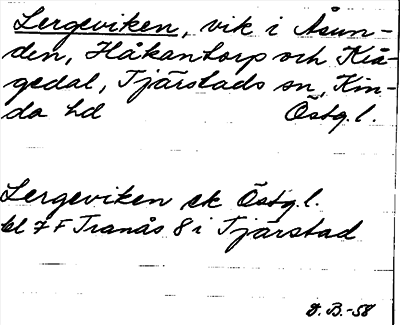 Lergeviken, vik i Åsun-
den, Håkantorp och Kiä-
gedal, Tjärstads sn, Kin-
da hd Östg.l.
Lergeviken ek Östg.l.
bl 7 F Tranås 8 i Tjärstad
D. B.-58